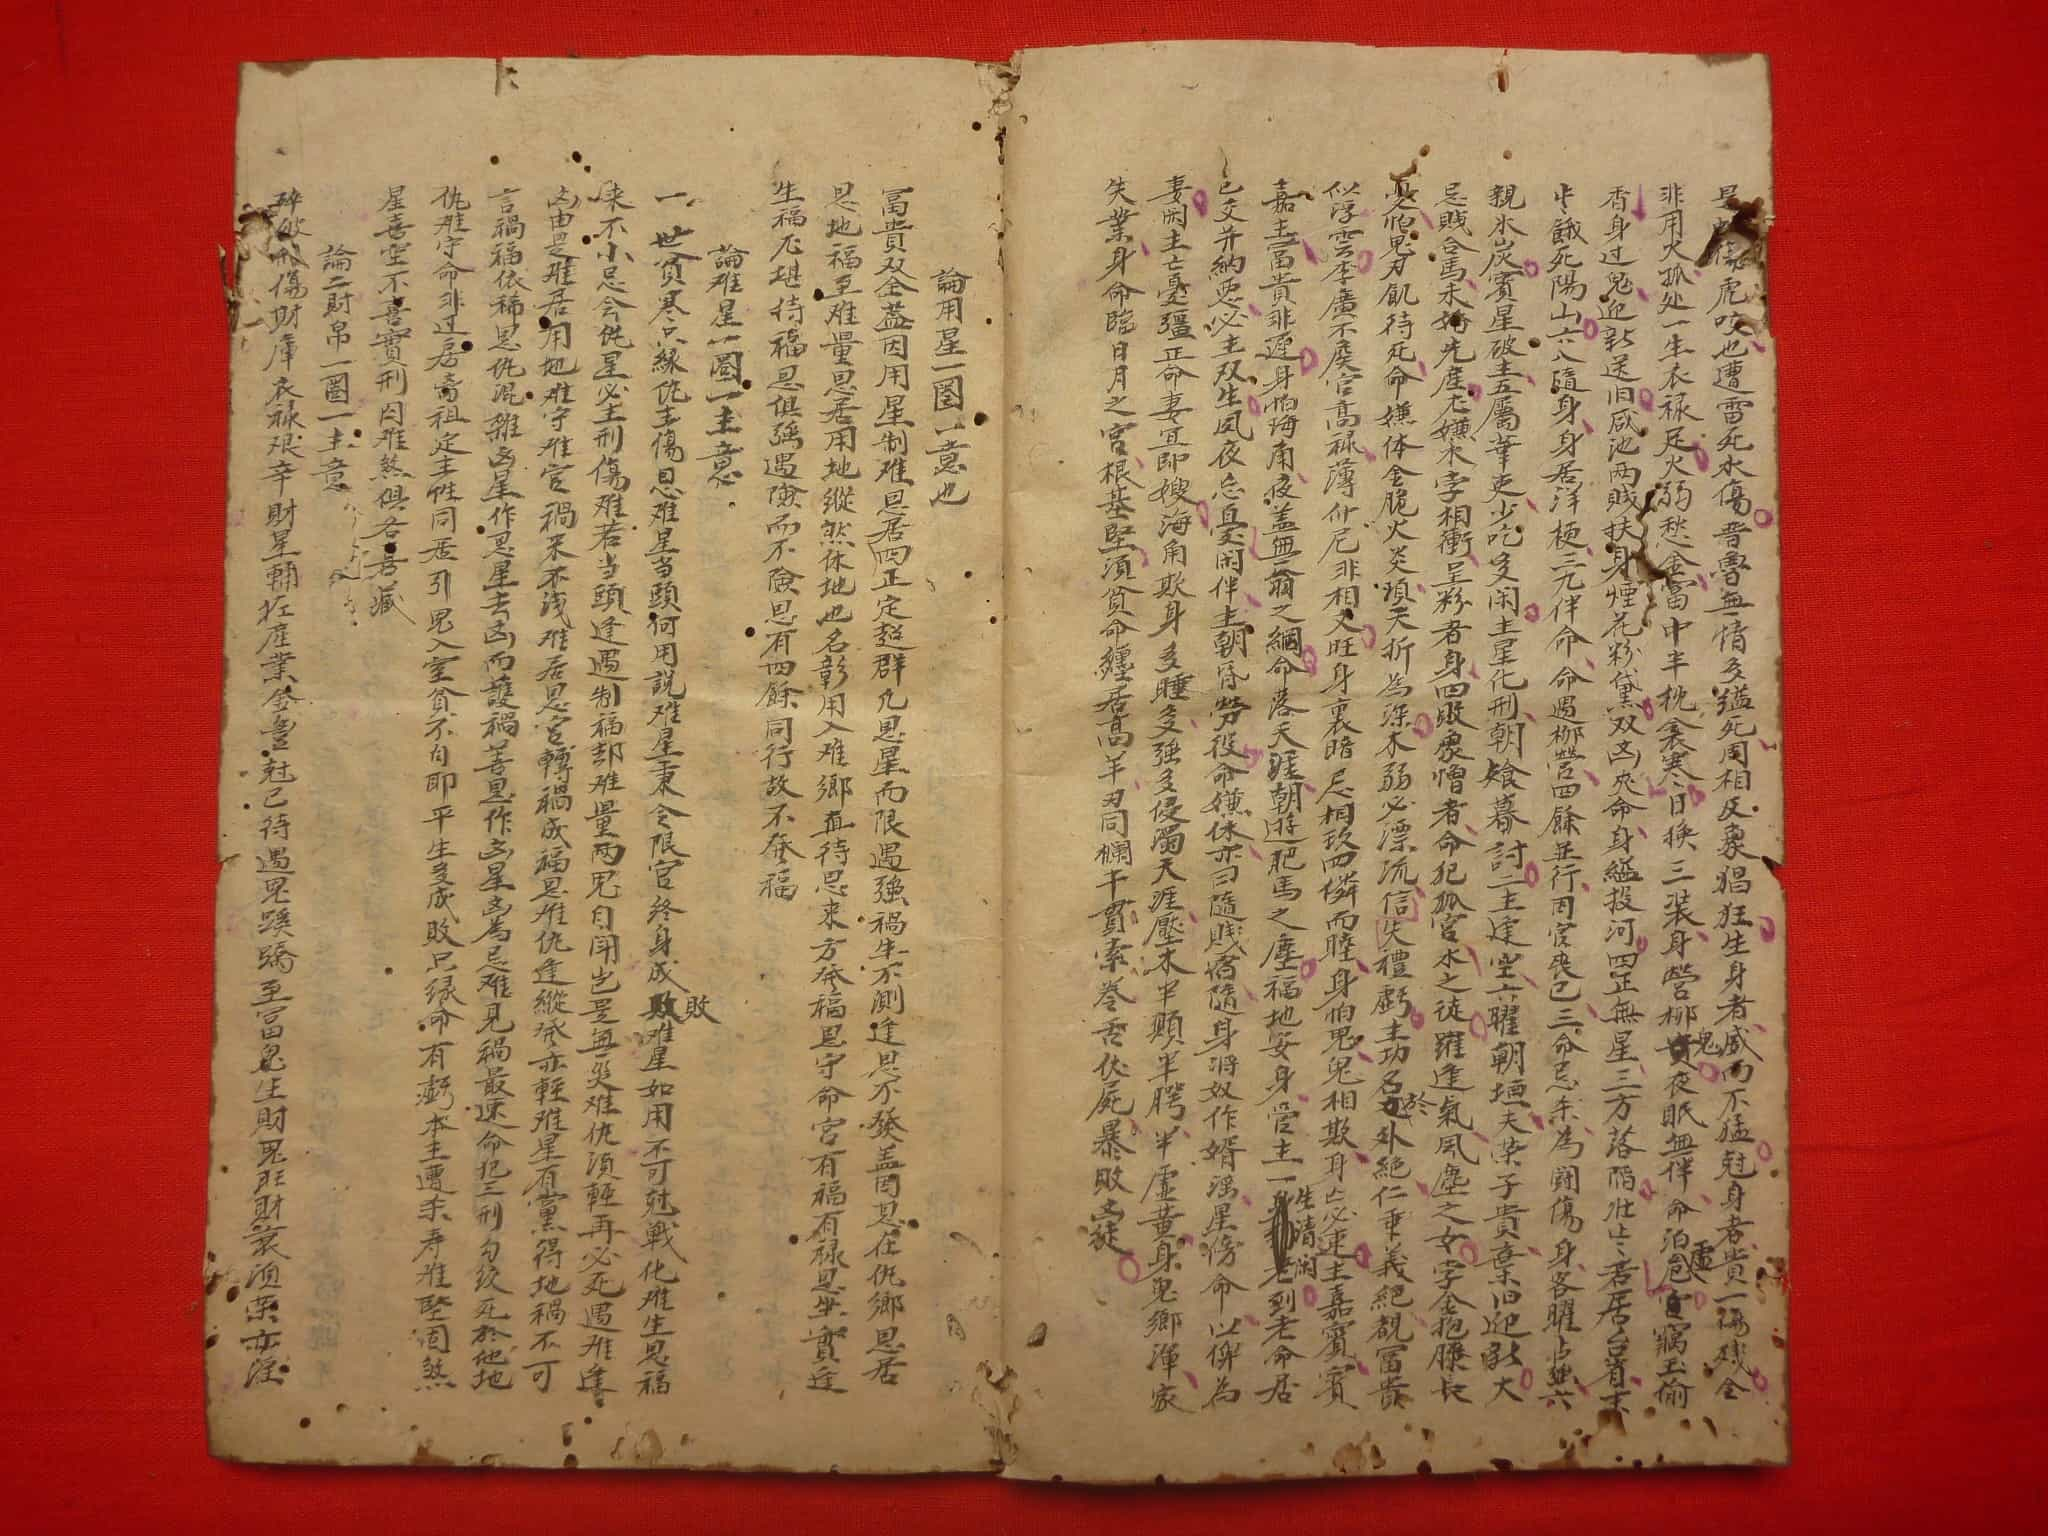 虎咬也遭雷死水傷晉魯無情多縊死周相反象猖狂生身者威而不猛尅身者貴一傷殘全
非用火孤处一生衣禄足火弱愁金富中半枕衾寒日换三装身營柳鬼夜眠無伴命泊虛宜竊玉偷
香身过鬼迎新送旧咸池两賊扶身煙花粉黛双凶夾命身縊投河四正無星三方落陷壮士若居台省
餓死陽山六八隨身身居洋梗三元伴命命遇柳營四餘並行因官喪己三命忌杀為闘傷身客曜占強六
親氷炭賓星破主五屬華吏少吃多闲主星化刑朝飱暮討二主逢空六曜朝垣夫荣子貴棄旧迎新大
忌賎合馬未婚先産尤嫌水字相衝呈粉者身四敗衆憎者命犯孤宮水之徒羅逢氣風塵之女孛金抱腰長
憂怕鬼刃飢待死命嫌体金脆火炎項夭折為深木弱必漂流信失禮虧主功名於外絶仁乖義絕覩富貴
似浮雲李廣不侯官高禄薄仲尼非相文旺身裏暗忌相玖四憐而瞳身怕鬼鬼相欺身亡必逢主嘉賓賓
嘉主富貴非遲身怕海角夜盖無翁之綢命落天涯朝遊肥馬之塵福地安身受主一生清闲老到老命居
已交并納惡必主双生夙夜忘且憂闲伴主朝昏勞役命嫌休亦曰隨賎宿隨身將奴作婿滛星傍命以婢為
妻闲主亡憂彊正命妻宜即嫂海角欺身多睡多強多侵濁天涯壓木半顛半腭半虛黄身鬼鄉渾家
失業身命臨日月之宮根基堅須貧命纏居高羊刃同欄干貫索卷舌伏屍暴敗之徒
論用星一圖一意也
富貴双全蓋因用星制难恩居四正定超群凡恩星而限遇強禍生不測逢恩不發盖因恩在仇鄉恩居
恩地福至难量恩居用地縱然休地也名彰用入难鄉直待恩来方發福恩守命宮有福有禄恩坐實迍
生福尤堪待福恩俱強遇險而不險恩有四餘同行故不發福
論难星一圖一主意
一世貧寒只緣仇主傷恩难星当頭何用説难星秉令限官終身成敗难星如用不可尅戰化难生恩福
来不小忌会仇星必主刑傷难若当頭逢遇制福却难量两鬼自闘豈是無災难仇須輕再必死遇难逢
凶由是难居用地难守难官禍来不浅难居恩宮轉禍成福恩难仇逢縱發亦輕难星有黨得地禍不可
言禍福依稀恩仇混雜凶星作恩星去凶而護禍善恩作凶星凶為忌难見禍最速命犯三刑勾絞死於他地
仇难守命非过房離祖定主性同居引鬼入室貧不自即平生多成敗只缘命有虧本主遭杀寿难堅固煞
星喜空不喜實刑囚难煞俱各喜藏
論二財帛一圖一主意
碎破刑傷財庫衣禄艰辛財星輔拡産業金豊尅已待遇鬼蹊蹺至富鬼生財鬼旺財衰須荣亦滛